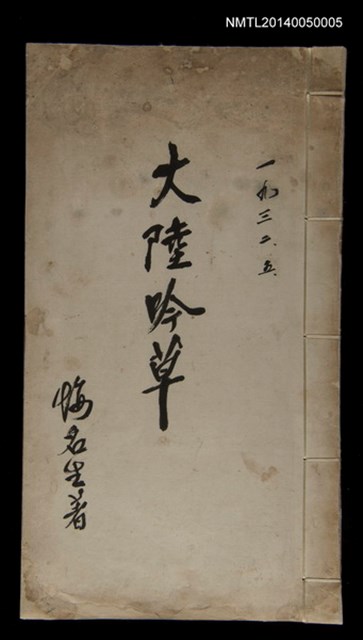 NMTL20140050005
一九三二、五、
大陸吟草
悔名生著